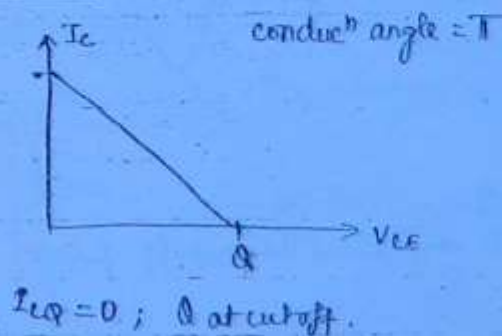 I_C
conducⁿ angle = π
Q
V_CE
I_CQ = 0 ; Q at cutoff.